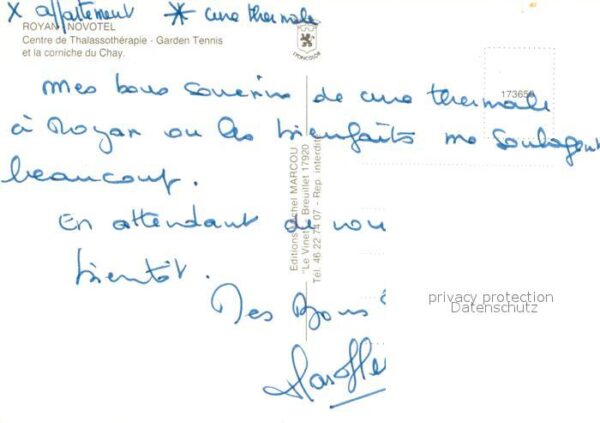 X appartement * cure thermale
ROYAN NOVOTEL
Centre de Thalassothérapie - Garden Tennis
et la corniche du Chay.
LYONCOLOR
173656
Mes bons souvenirs de cure thermale
à Royan ou les bienfaits me soulagent
beaucoup.
En attendant de vou
bientôt.
Mes Bons
Editions Michel MARCOU
"Le Vinet" Breuillet 17920
Tél. 46 22 74 07 - Rep. interdite
privacy protection
Datenschutz